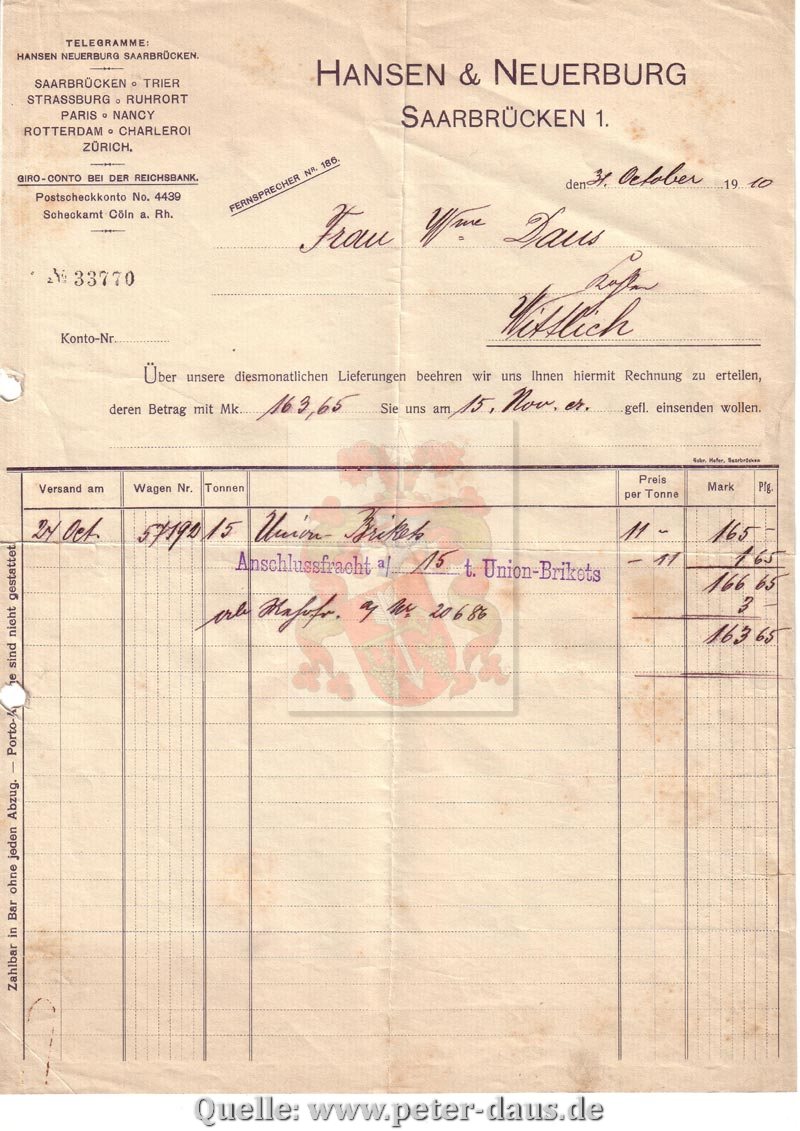 TELEGRAMME:
HANSEN NEUERBURG SAARBRÜCKEN.
SAARBRÜCKEN o TRIER
STRASSBURG o RUHRORT
PARIS o NANCY
ROTTERDAM o CHARLEROI
ZÜRICH.
GIRO-CONTO BEI DER REICHSBANK.
Postscheckkonto No. 4439
Scheckamt Cöln a. Rh.
HANSEN & NEUERBURG
SAARBRÜCKEN 1.
FERNSPRECHER NR. 186.
den 31. October 1910
Frau Wwe Daus
№ 33770
Wittlich
Konto-Nr.
Über unsere diesmonatlichen Lieferungen beehren wir uns Ihnen hiermit Rechnung zu erteilen,
deren Betrag mit Mk. 163,65 Sie uns am 15. Nov. cr. gefl. einsenden wollen.
Gebr. Hofer, Saarbrücken
Versand am Wagen Nr. Tonnen Preis per Tonne Mark Pfg.
24 Oct. 57192 15 Union Brikets 11 – 165 –
Anschlussfracht a/ 15 t. Union-Brikets – 11 1 65
166 65
20686 3 –
163 65
Zahlbar in Bar ohne jeden Abzug. — sind nicht gestattet.
Quelle: www.peter-daus.de